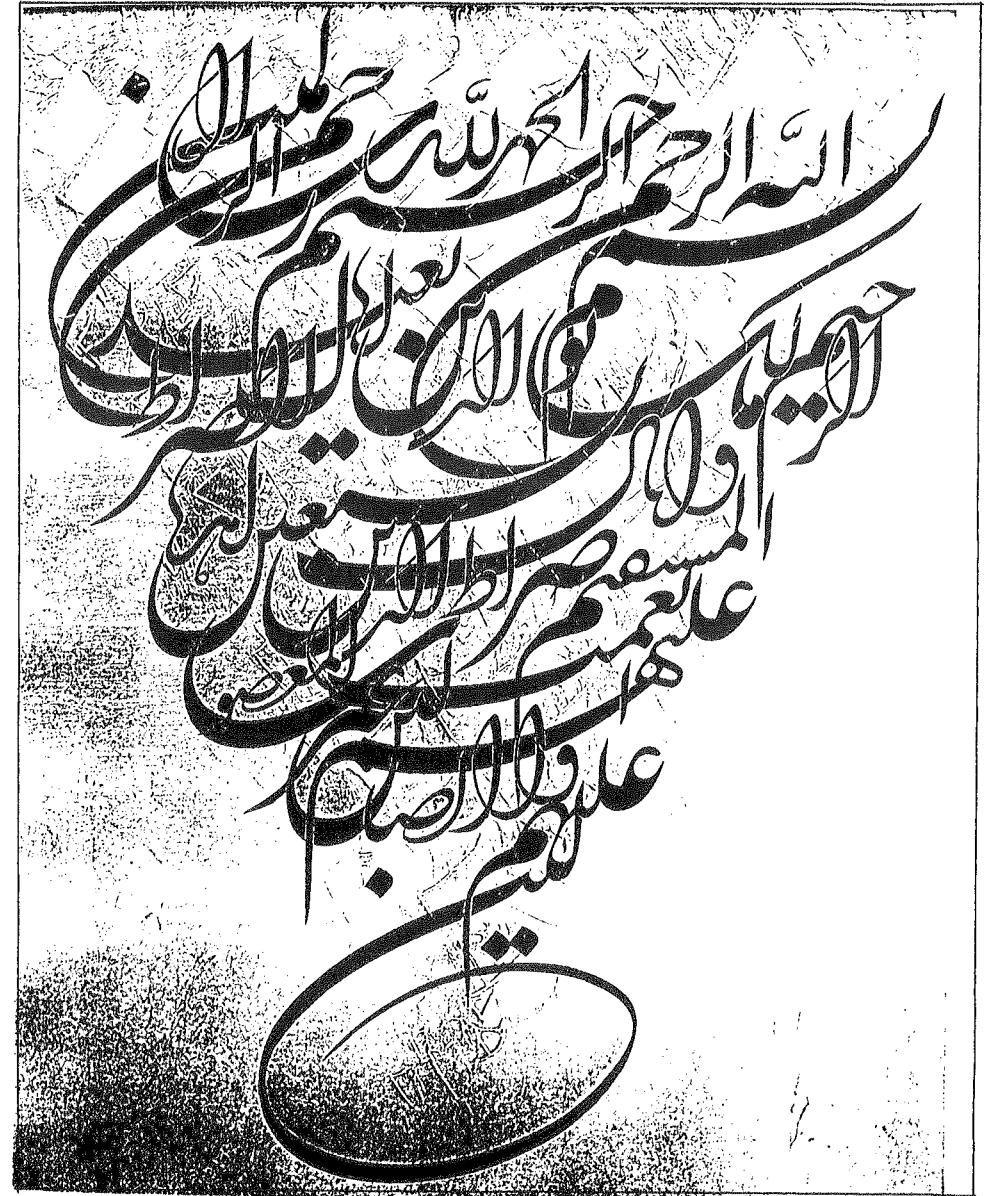 بسم الله الرحمن الرحیم الحمد لله رب العالمین
الرحمن الرحیم مالک یوم الدین ایاک نعبد
وایاک نستعین اهدنا الصراط
المستقیم صراط الذین انعمت
علیهم غیر المغضوب
علیهم ولا الضالین